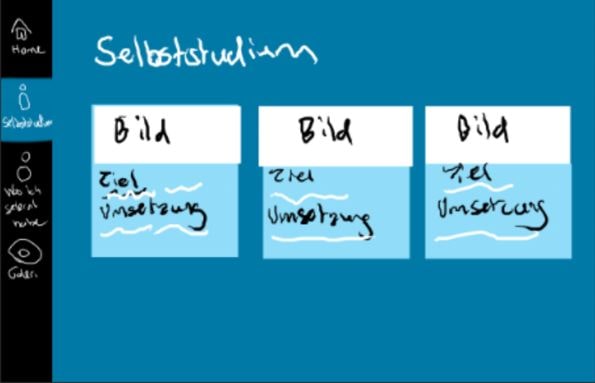 Home
Selbststudium
Was ich
gelernt
habe
Galeri
Selbststudium
Bild
Ziel
Umsetzung
Bild
Ziel
Umsetzung
Bild
Ziel
Umsetzung